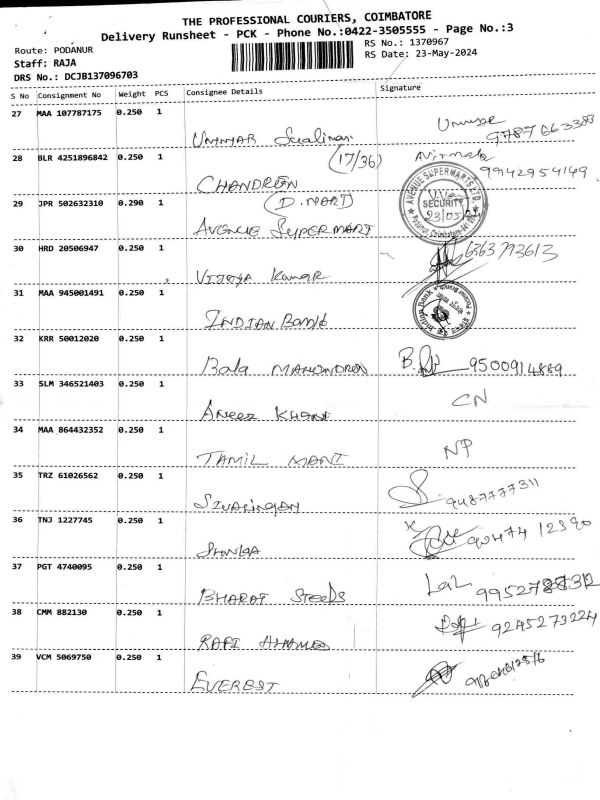 THE PROFESSIONAL COURIERS, COIMBATORE
Delivery Runsheet - PCK - Phone No.:0422-3505555 - Page No.:3
Route: PODANUR
RS No.: 1370967
Staff: RAJA
RS Date: 23-May-2024
DRS No.: DCJB137096703
S No Consignment No Weight PCS Consignee Details Signature
27 MAA 107787175 0.250 1
28 BLR 4251896842 0.250 1 (17/36)
9942954149
CHANDRON
29 JPR 502632310 0.290 1 (D.MART)
AVENUE SUPERMARTS LTD.
SECURITY
23/05/24
AVENUE SUPERMART
30 HRD 20506947 0.250 1 6363793613
VIJAYA Kumar
31 MAA 945001491 0.250 1
INDIAN Bank
32 KRR 50012020 0.250 1
Bala MAHONDRON 9500914889
33 SLM 346521403 0.250 1 CN
ANEEZ KHAN
34 MAA 864432352 0.250 1 NP
TAMIL MANI
35 TRZ 61026562 0.250 1 9487777311
SIVALINGAM
36 TNJ 1227745 0.250 1 90474 12390
37 PGT 4740095 0.250 1 Lal
BHARAT STEEDS
38 CMM 882130 0.250 1 9245273224
RAFI AHAMED
39 VCM 5069750 0.250 1
EVEREST